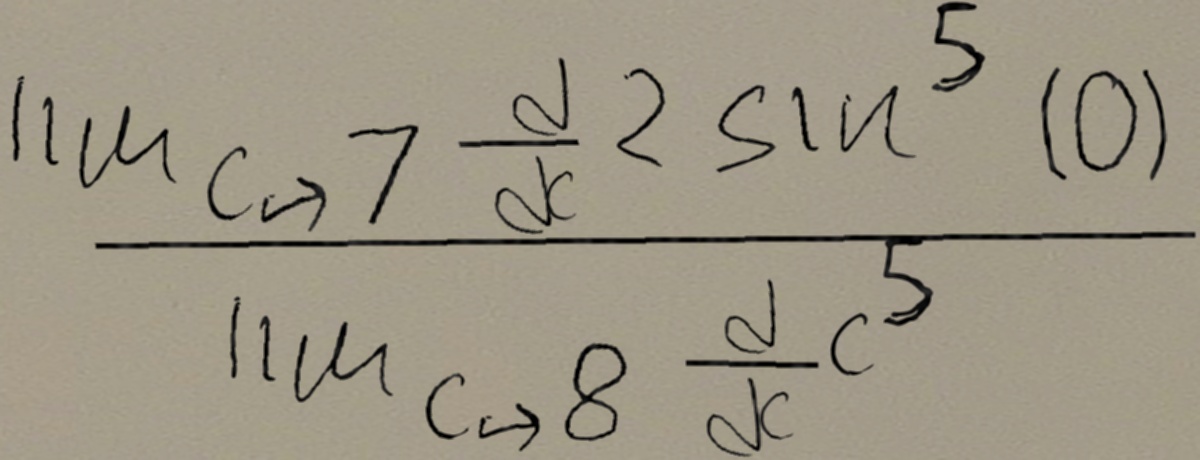 \frac{\lim_{c \to 7} \frac{d}{dc} 2 \sin^5 (0)}{\lim_{c \to 8} \frac{d}{dc} c^5}